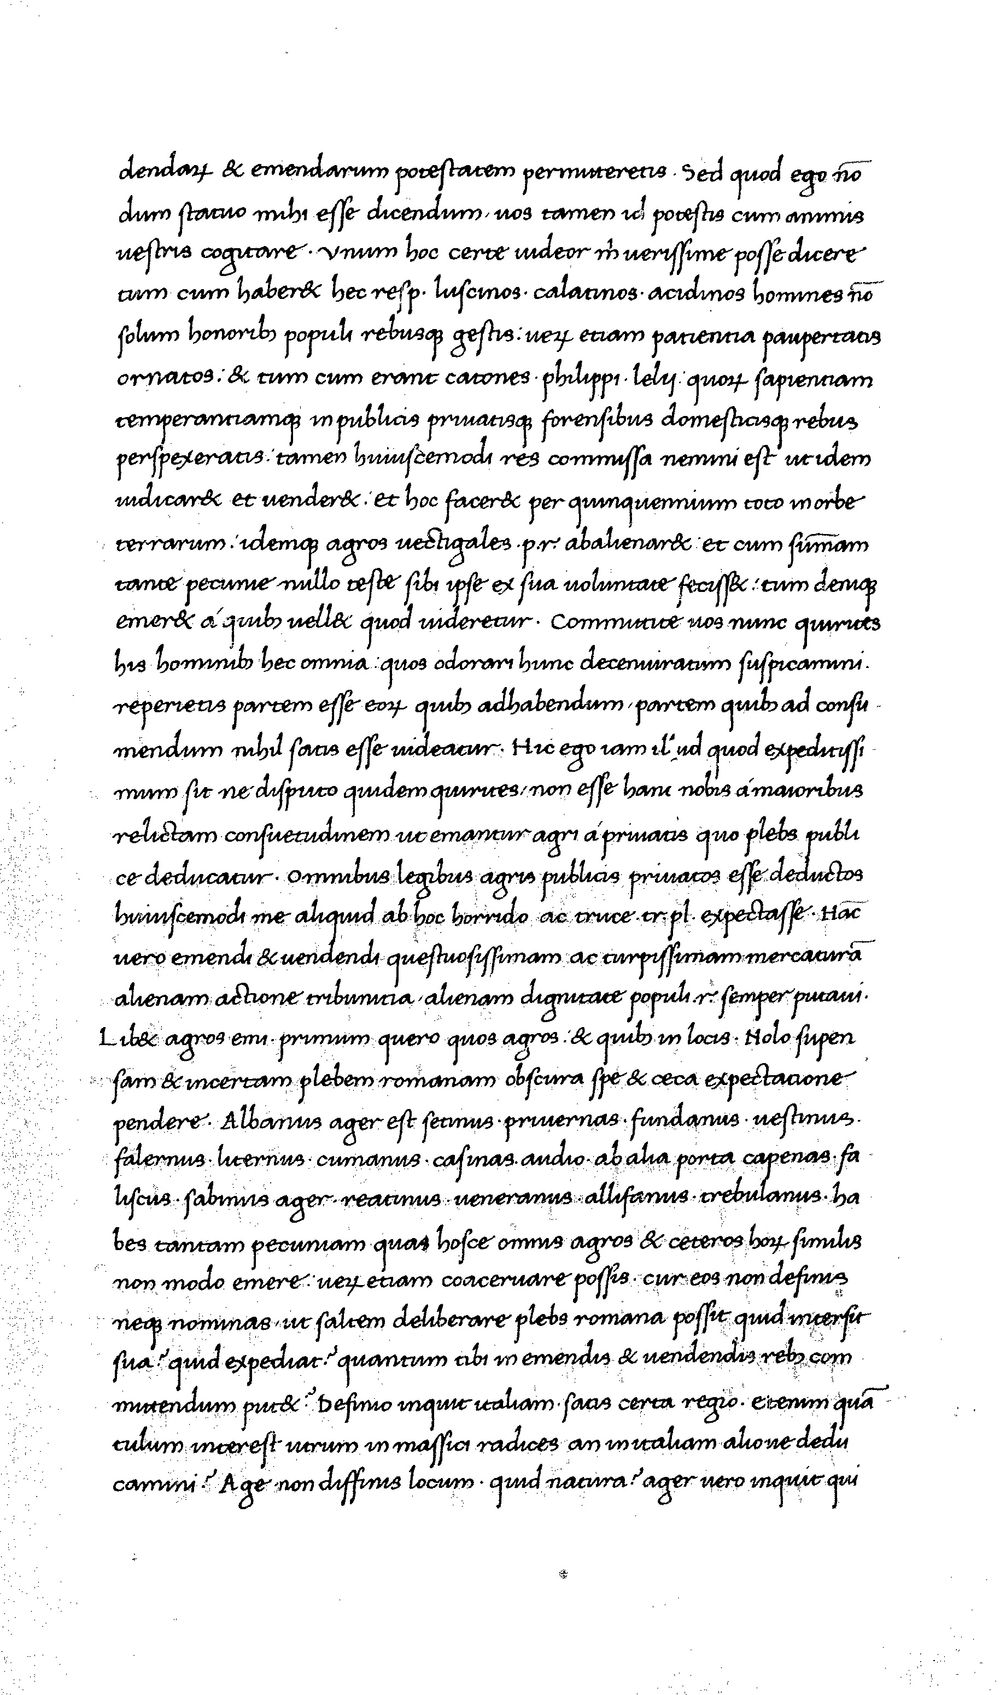 dendaꝝ & emendarum potestatem permitteretis · Sed quod ego nō
dum statuo mihi esse dicendum, uos tamen id potestis cum animis
uestris cogitare · Vnum hoc certe uideor m̄ uerissime posse dicere
tum cum haber& hec resp · luscinos · calatinos · acidinos homines nō
solum honoribꝫ populi rebusqꝫ gestis : ueꝝ etiam patientia paupertatis
ornatos : & tum cum erant catones · philippi · lelij : quoꝝ sapientiam
temperantiamqꝫ in publicis priuatisqꝫ forensibus domesticisqꝫ rebus
perspexeratis : tamen huiuscemodi res commissa nemini est ut idem
iudicar& et uender& : et hoc facer& per quinquennium toto in orbe
terrarum : idemqꝫ agros uectigales · p.r. abalienar& : et cum sum̄am
tante pecunie nullo teste sibi ipse ex sua uoluntate feciss& : tum deniqꝫ
emer& á quibꝫ uell& quod uideretur · Committite uos nunc quirites
his hominibꝫ hec omnia : quos odorari hunc decemuiratum suspicamini ·
reperietis partem esse eoꝝ quibꝫ ad habendum, partem quibꝫ ad consu
mendum nihil satis esse uideatur · Hic ego iam illud quod expeditissi
mum sit ne disputo quidem quirites, non esse hanc nobis á maioribus
relictam consuetudinem ut emantur agri á priuatis quo plebs publi
ce deducatur · Omnibus legibus agris publicis priuatos esse deductos
huiuscemodi me aliquid ab hoc horrido ac truce · tr. pl. expectasse · Hāc
uero emendi & uendendi questuosissimam ac turpissimam mercaturā
alienam actione tribunitia, alienam dignitate populi .r. semper putaui ·
Lib& agros emi · primum quero quos agros : & quibꝫ in locis · Nolo suspen
sam & incertam plebem romanam obscura spe & ceca expectatione
pendere · Albanus ager est setinus · priuernas · fundanus · uestinus ·
falernus · liternus · cumanus · casinas · audio · ab alia porta capenas · fa
liscus · sabinus ager · reatinus · ueneranus · allifanus · trebulanus · ha
bes tantam pecuniam quas hosce omnis agros & ceteros hoꝝ similis
non modo emere : ueꝝ etiam coaceruare possis · cur eos non definis
neqꝫ nominas, ut saltem deliberare plebs romana possit quid intersit
sua? quid expediat? quantum tibi in emendis & uendendis rebꝫ com
mittendum put&? Definio inquit italiam · satis certa regio · etenim quā
tulum interest utrum in massici radices an in italiam alioue dedu
camini? Age non diffinis locum · quid natura? ager uero inquit qui